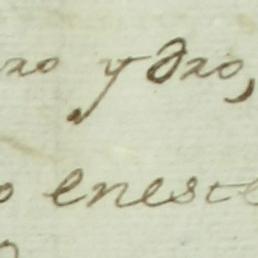 xo y dxo,
o eneste